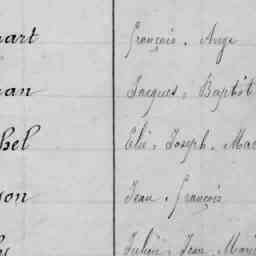 art François. Ange
an Jacques. Baptist
hel Elie. Joseph. Mar
son Jean. François
Julien. Jean. Marie